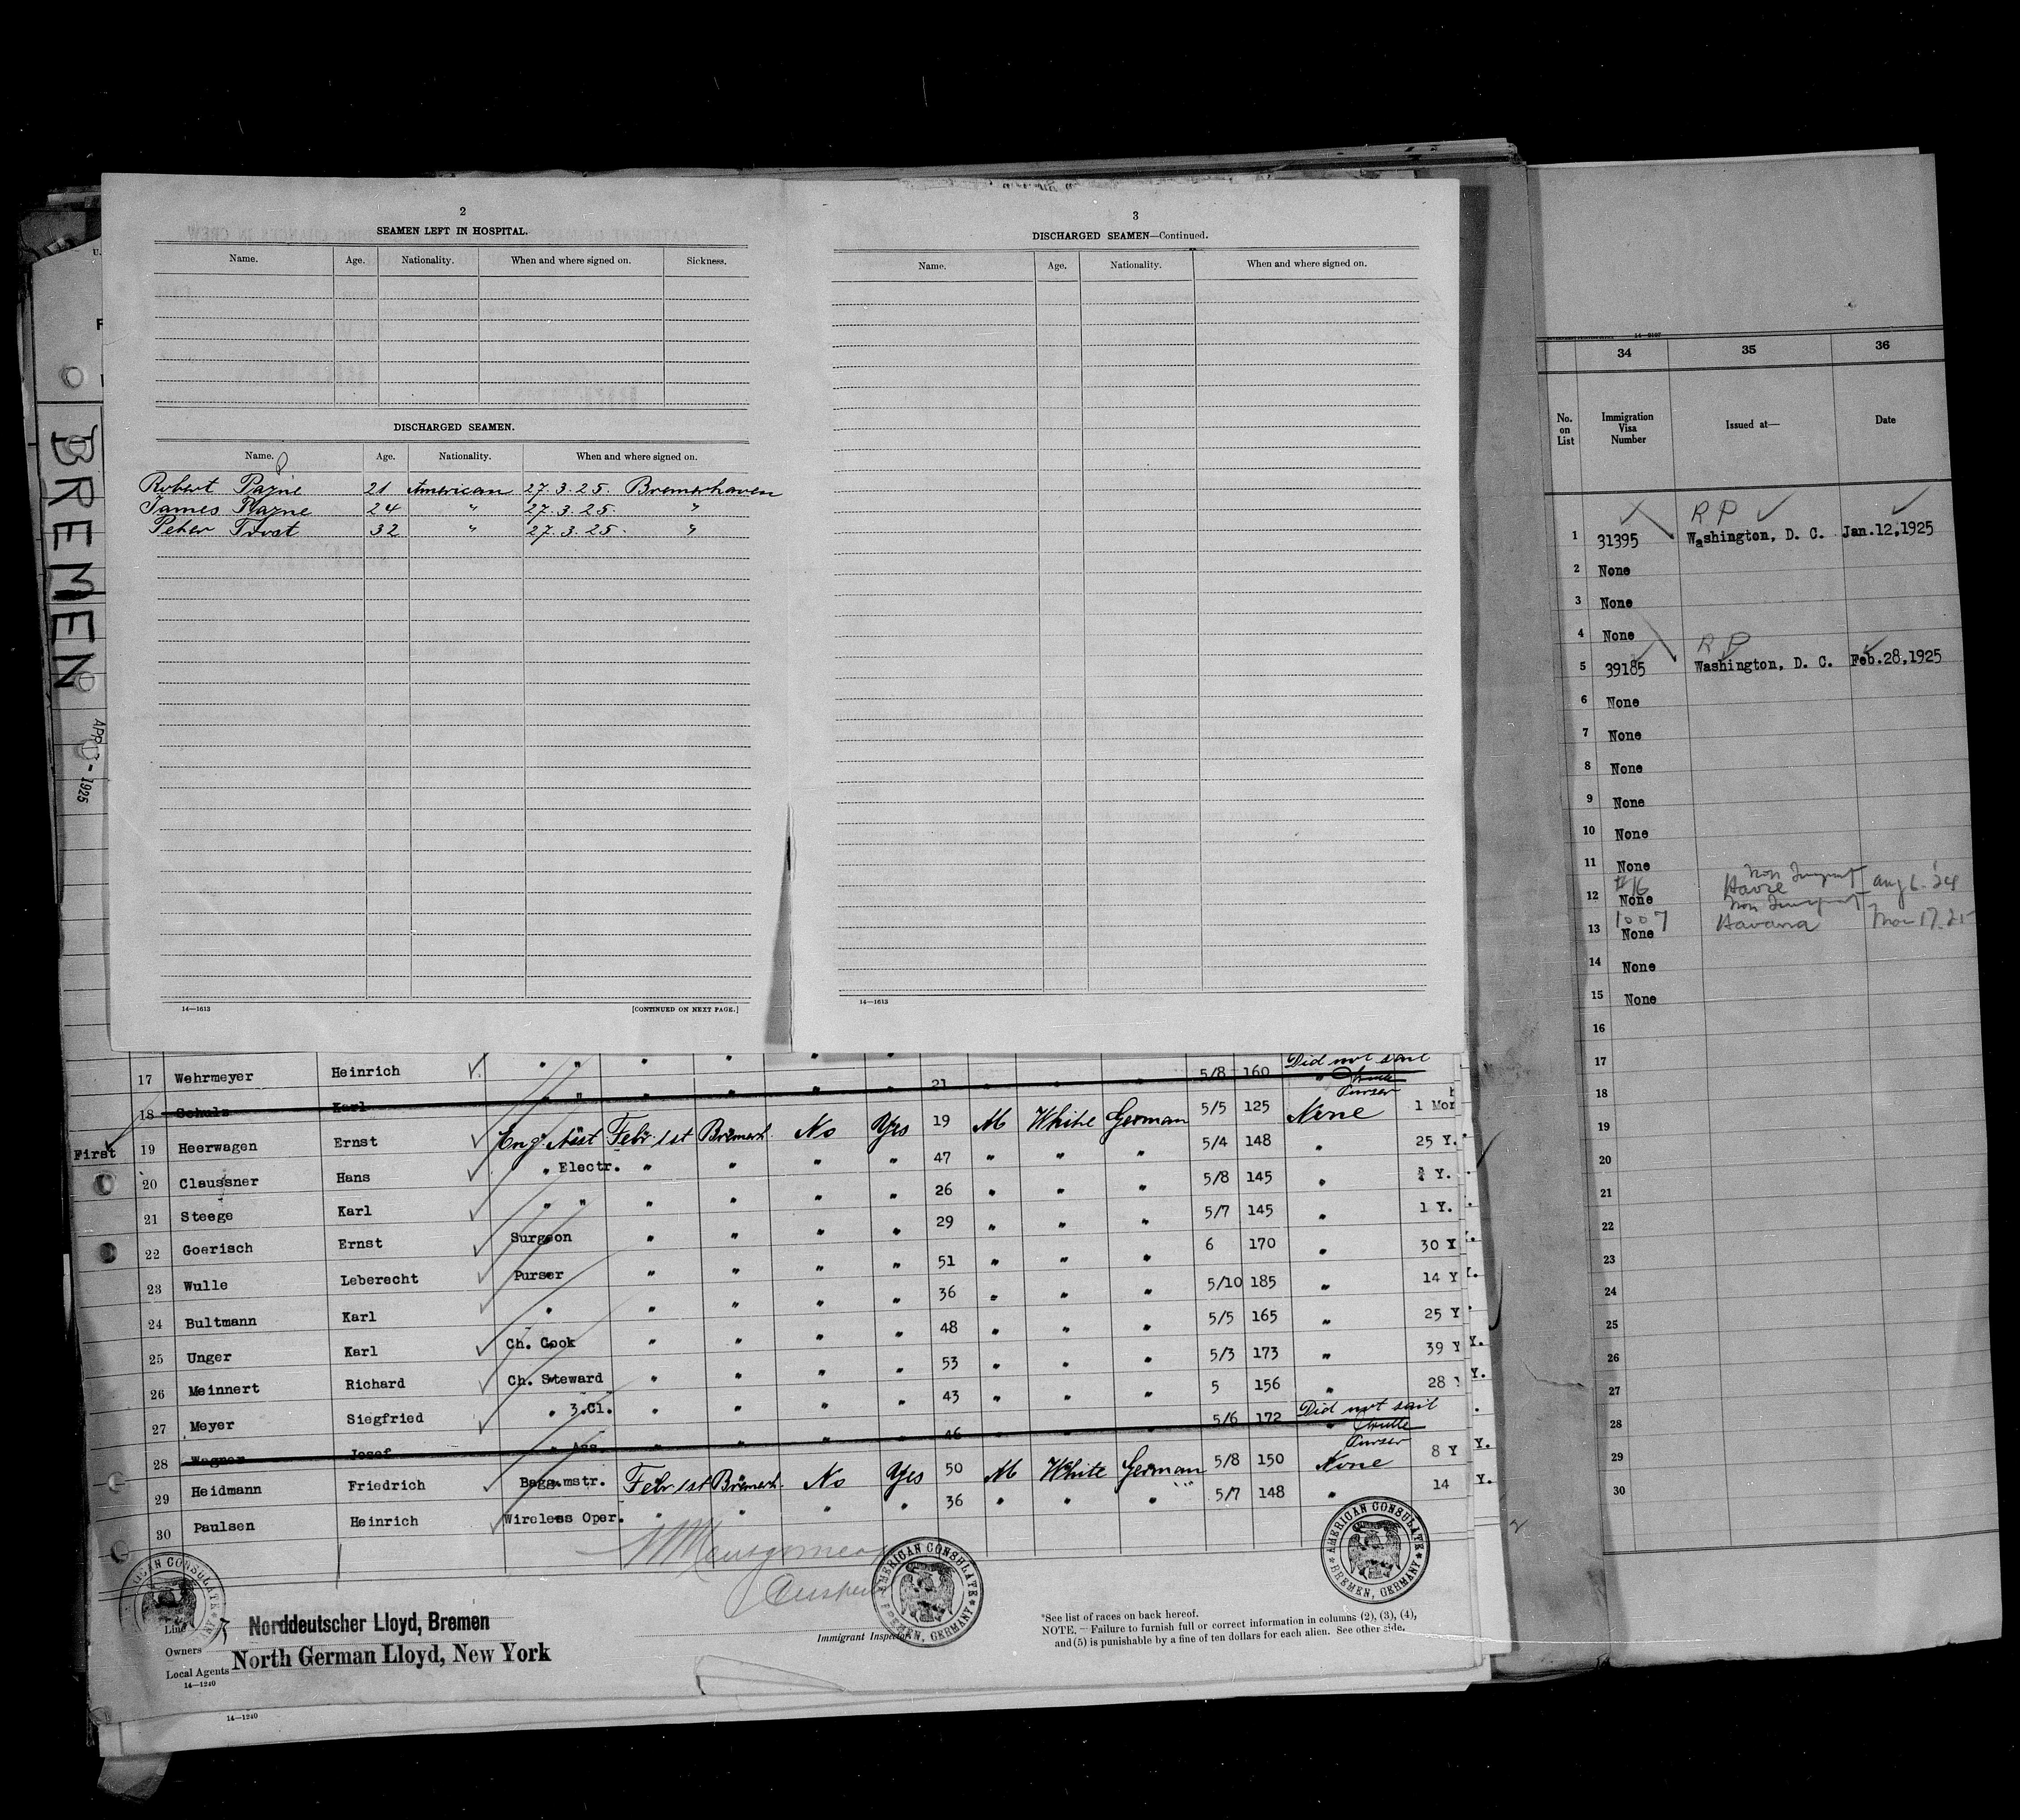 2
SEAMEN LEFT IN HOSPITAL.
Name. Age. Nationality. When and where signed on. Sickness.
DISCHARGED SEAMEN.
Name. Age. Nationality. When and where signed on.
Robert Payne 21 American 27.3.25. Bremerhaven
James Payne 24 " 27.3.25. "
Peter Trost 32 " 27.3.25. "
14—1613 [CONTINUED ON NEXT PAGE.]
3
DISCHARGED SEAMEN—Continued.
Name. Age. Nationality. When and where signed on.
14—1613
BREMEN
1925
17 Wehrmeyer Heinrich " " " " 21 " " " 5/8 160 Did not sail
18 Schulz Karl " " " " Wulle Purser
First 19 Heerwagen Ernst Eng. Asst Febr. 1st Bremerh. No Yes 19 M White German 5/5 125 None 1 Mon
20 Claussner Hans " Electr. " " " " 47 " " " 5/4 148 " 25 Y.
21 Steege Karl " " " " " " 26 " " " 5/8 145 " Y.
22 Goerisch Ernst Surgeon " " " " 29 " " " 5/7 145 " 1 Y.
23 Wulle Leberecht Purser " " " " 51 " " " 6 170 " 30 Y
24 Bultmann Karl " " " " " 36 " " " 5/10 185 " 14 Y
25 Unger Karl Ch. Cook " " " " 48 " " " 5/5 165 " 25 Y
26 Meinnert Richard Ch. Steward " " " " 53 " " " 5/3 173 " 39 Y
27 Meyer Siegfried " 3.Cl. " " " " 43 " " " 5 156 " 28
28 Wagner Josef " Ass. " " " " 46 " " " 5/6 172 Did not sail Wulle Purser
29 Heidmann Friedrich Bagg.mstr. Febr. 1st Bremerh. No Yes 50 M White German 5/8 150 None 8 Y
30 Paulsen Heinrich Wireless Oper. " " " " 36 " " " 5/7 148 " 14
AMERICAN CONSULATE
BREMEN, GERMANY
AMERICAN CONSULATE
BREMEN, GERMANY
Line
Norddeutscher Lloyd, Bremen
Owners
Local Agents North German Lloyd, New York
14—1240
Immigrant Inspector.
*See list of races on back hereof.
NOTE.—Failure to furnish full or correct information in columns (2), (3), (4),
and (5) is punishable by a fine of ten dollars for each alien. See other side.
14—1240
34 35 36
No. on List Immigration Visa Number Issued at— Date
R P
1 31395 Washington, D. C. Jan.12,1925
2 None
3 None
4 None
R P
5 39185 Washington, D. C. Feb.28,1925
6 None
7 None
8 None
9 None
10 None
11 None
#16 Havre Aug 6. 24
12 None
1007 Havana
13 None
14 None
15 None
16
17
18
19
20
21
22
23
24
25
26
27
28
29
30